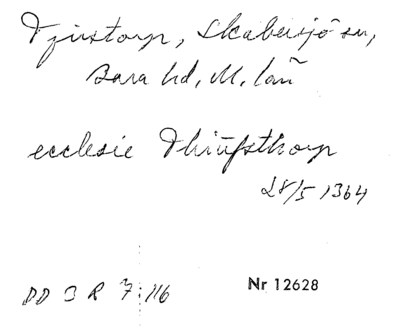 Tjustorp, Skabersjö sn,
Bara hd, M. län
ecclesie Thiufsthorp
28/5 1364
DD 3 R 7:116
Nr 12628